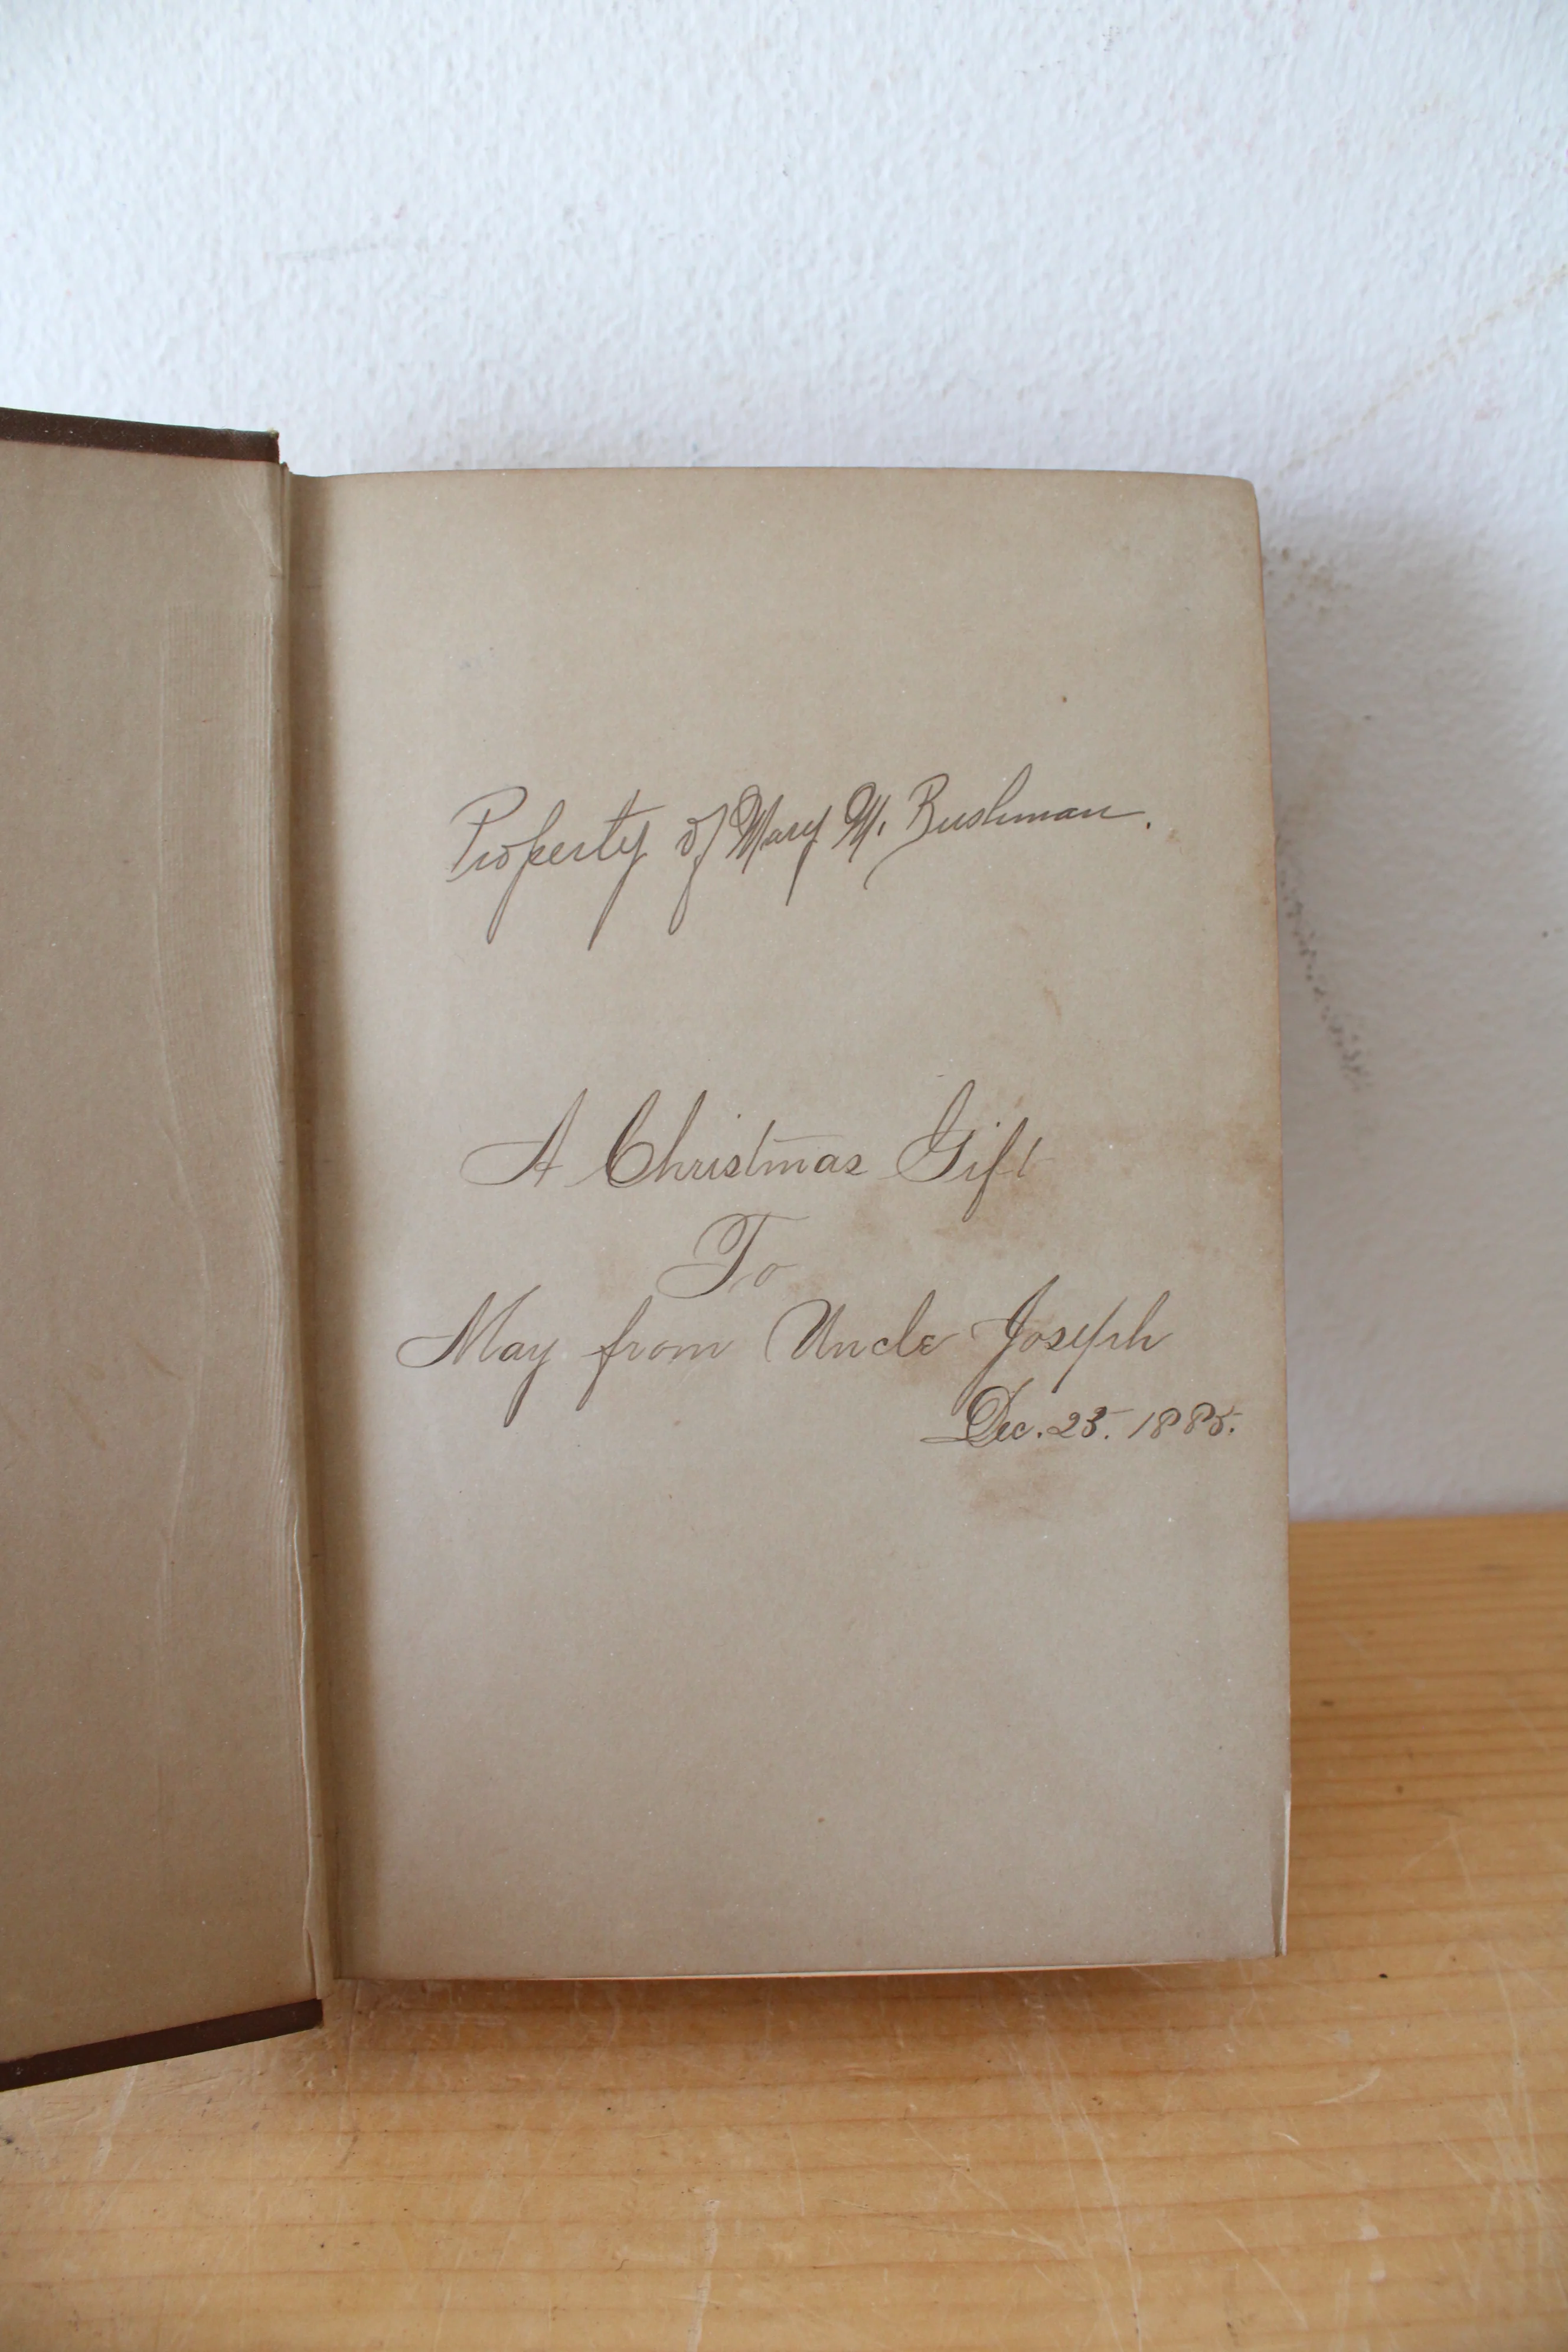 Property of Mary M. Bushman.
A Christmas Gift
To
May from Uncle Joseph
Dec. 25. 1885.